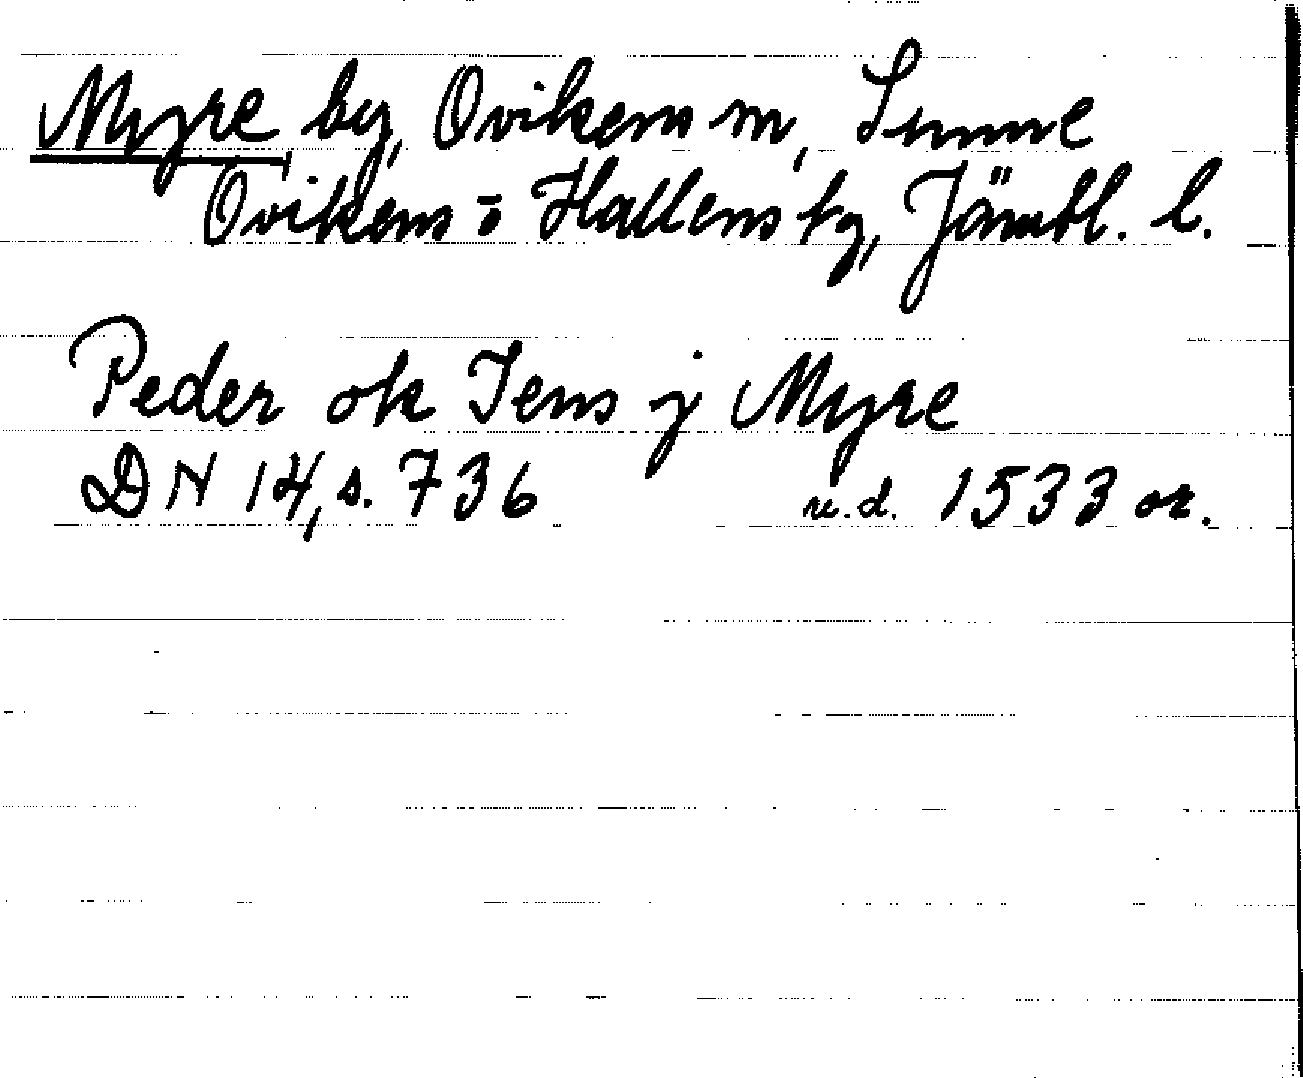 Myre by, Ovikens m, Sunne
Ovikens o Hallens tg, Jämtl. l.
Peder ok Jens j Myre
DN 14, s. 736 u.d. 1533 or.